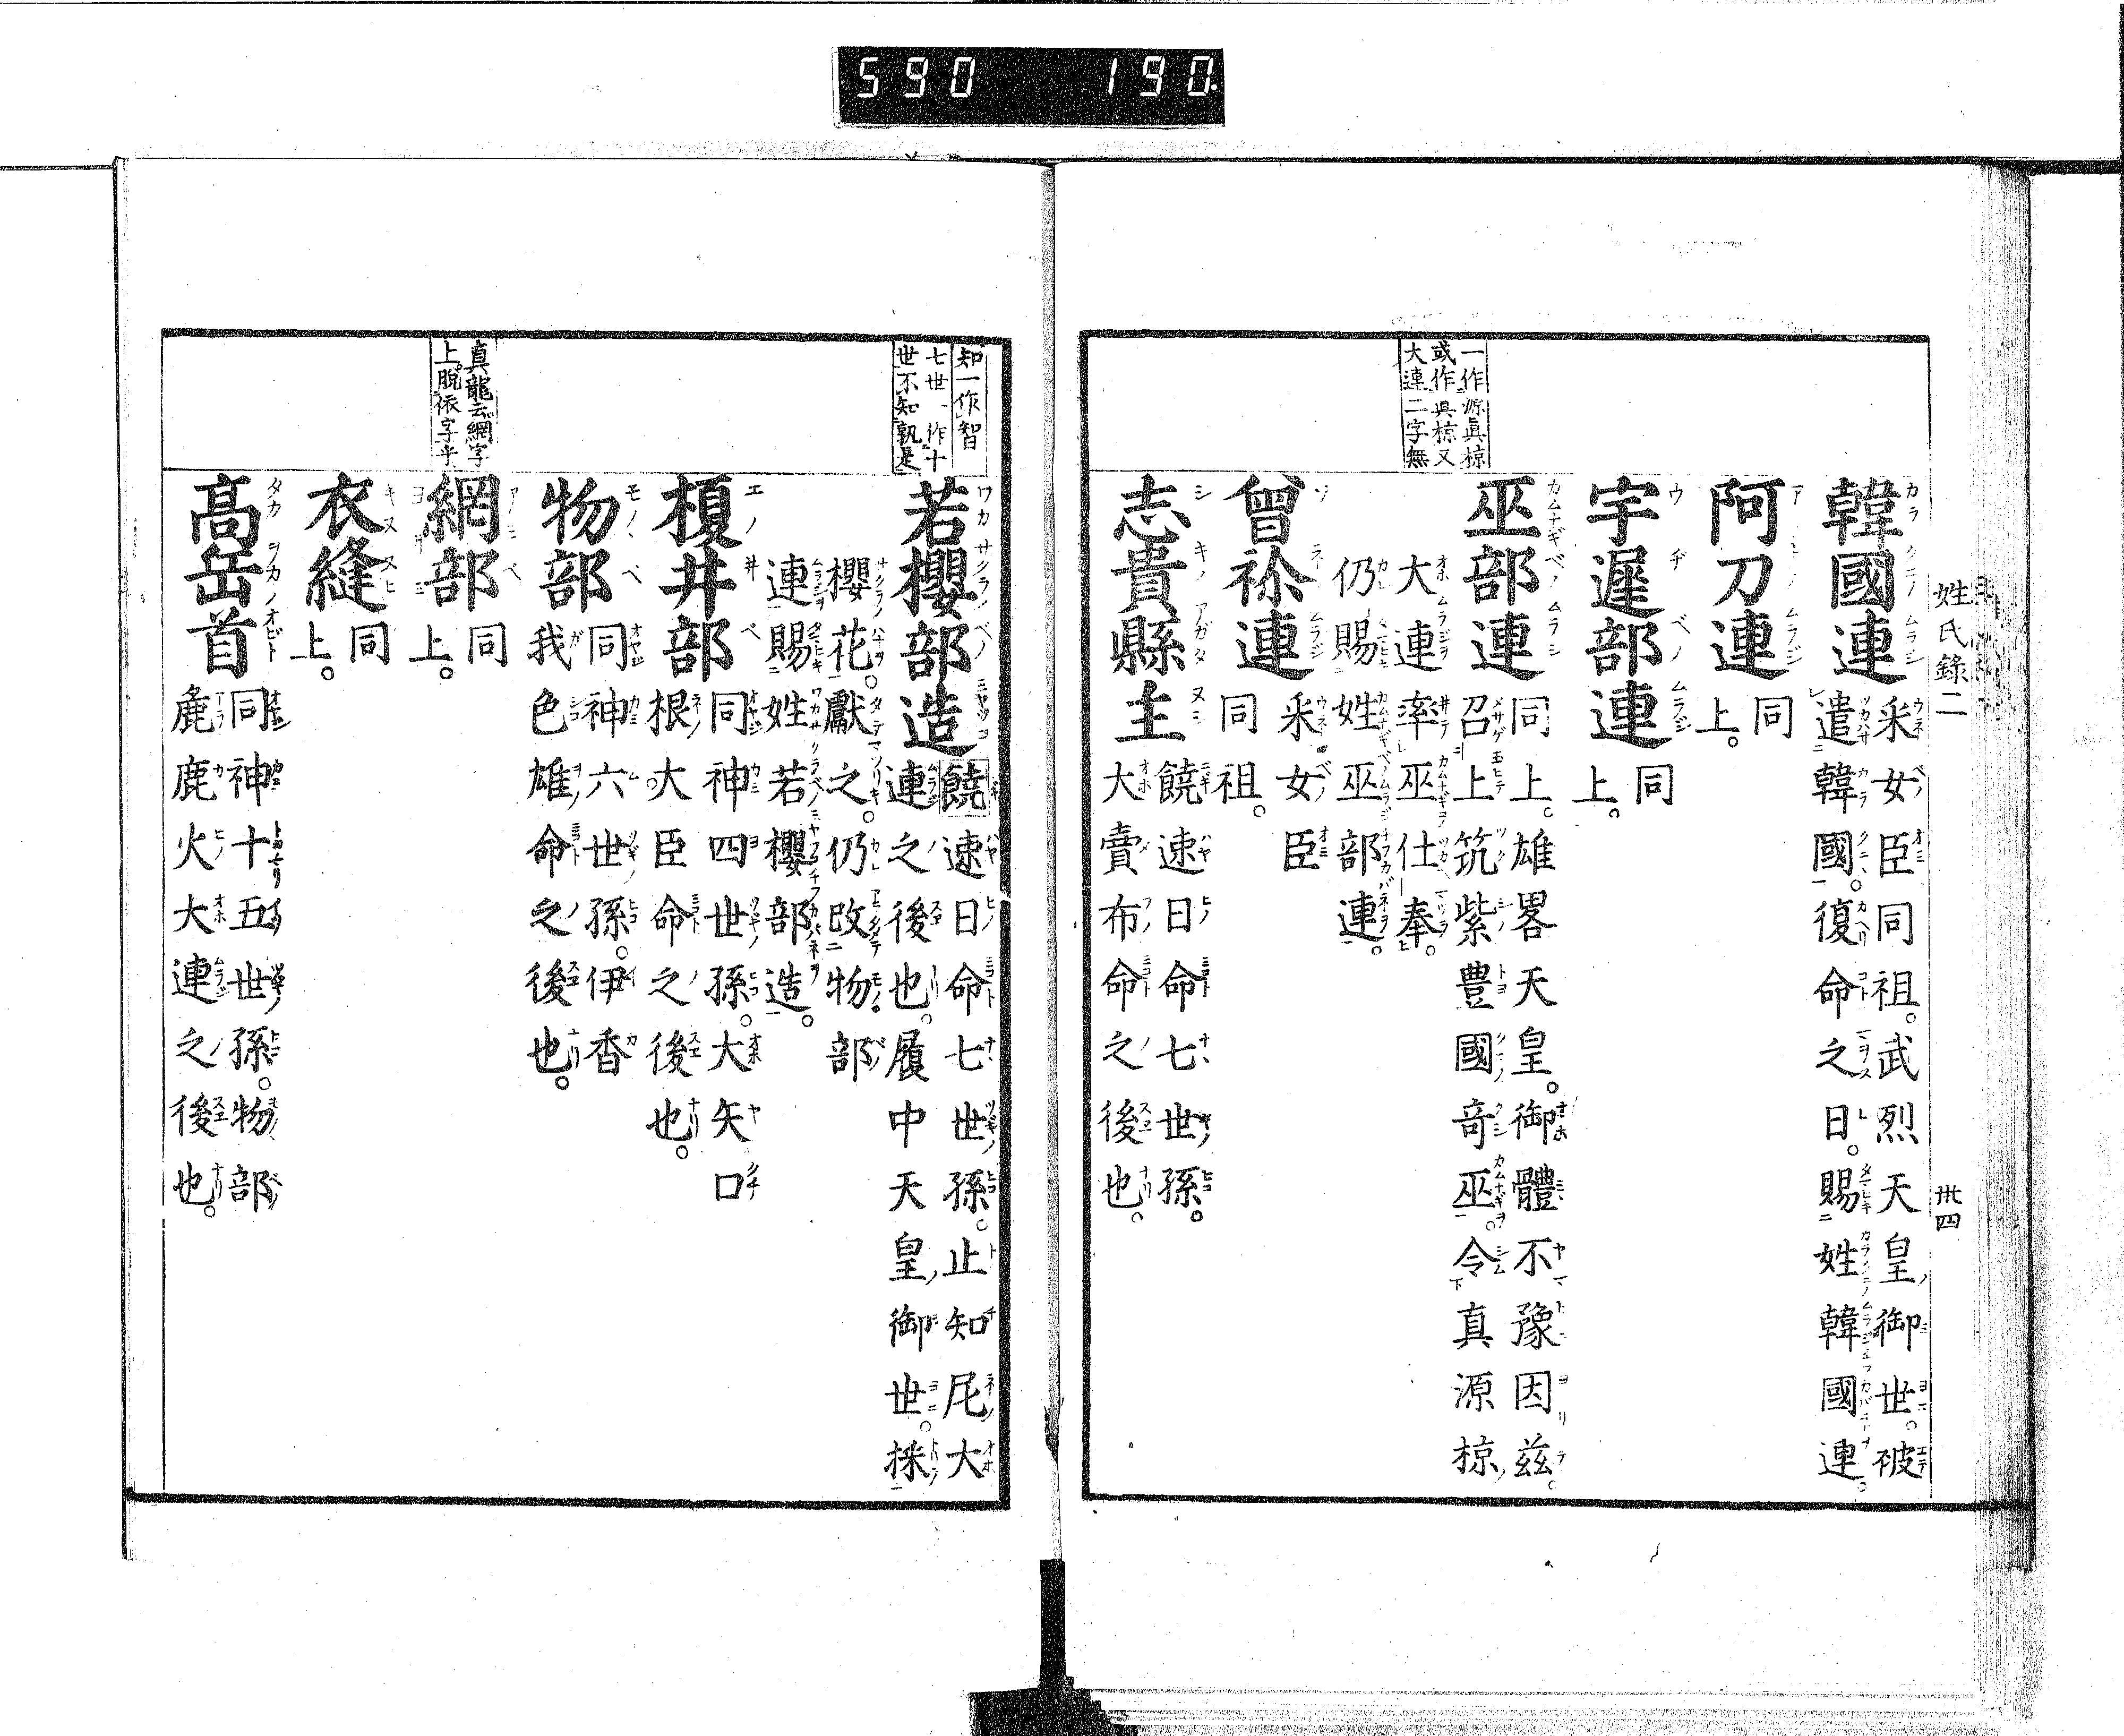 590 190
姓氏錄二 卅四
韓國連
采女臣同祖。武烈天皇御世。被
遣韓國。復命之日。賜姓韓國連。
阿刀連
同上。
宇遲部連
同上。
一作源眞椋
或作眞椋又
大連二字無
巫部連
同上。雄畧天皇。御體不豫因茲。
召上筑紫豊國竒巫。令真源椋
大連率巫仕奉。
仍賜姓巫部連。
曾祢連
采女臣
同祖。
志貴縣主
饒速日命七世孫。
大賣布命之後也。
知一作智
七世一作十
世不知孰是
若櫻部造
饒速日命七世孫。止知尼大
連之後也。履中天皇御世。採
櫻花。獻之。仍改物部
連賜姓若櫻部造。
榎井部
同神四世孫。大矢口
根大臣命之後也。
物部
同神六世孫。伊香
我色雄命之後也。
真龍云網字
上。脫依字乎
網部
同上。
衣縫
同上。
髙岳首
同神十五世孫。物部
麁鹿火大連之後也。